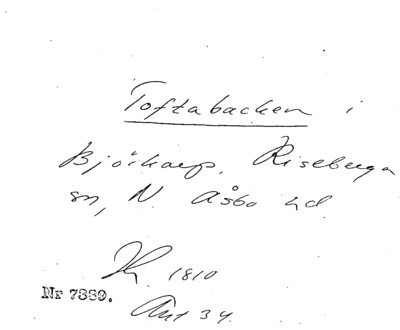 Toftabacken i
Björkarp, Riseberga
sn, N. Åsbo hd.
1810
Nr 7889.
Ant 34